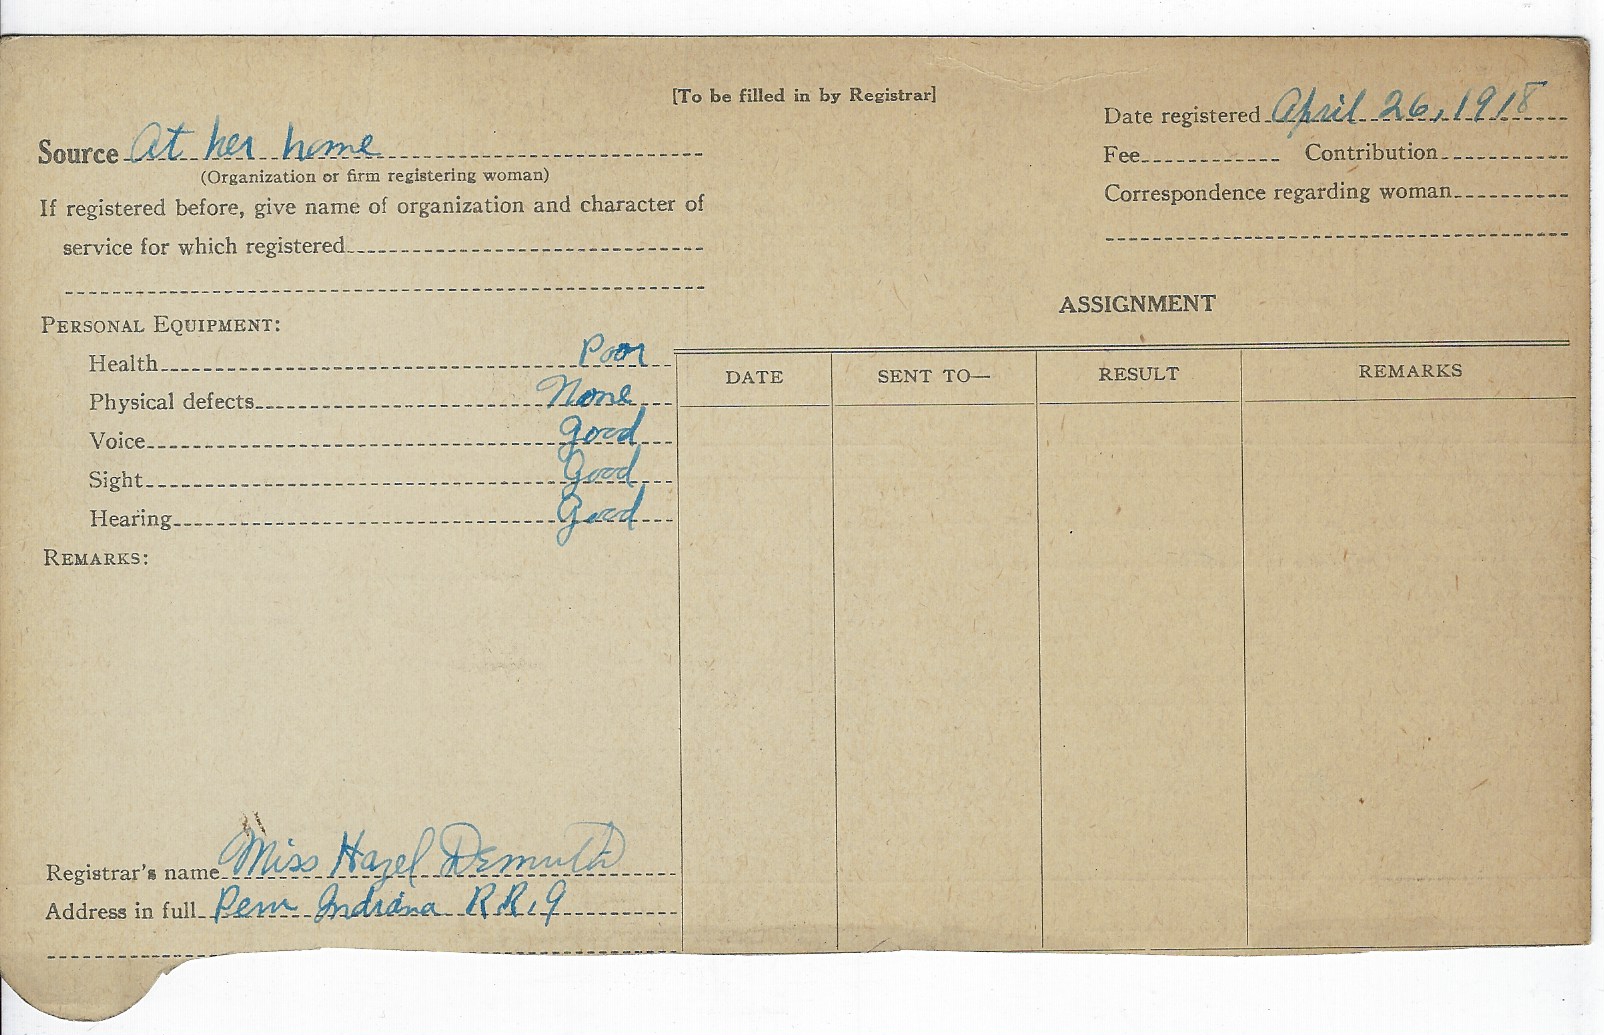 [To be filled in by Registrar]
Date registered April 26, 1918
Source At her home
(Organization or firm registering woman)
Fee Contribution
If registered before, give name of organization and character of
service for which registered
Correspondence regarding woman
ASSIGNMENT
PERSONAL EQUIPMENT:
Health Poor
Physical defects None
Voice good
Sight Good
Hearing Good
REMARKS:
DATE SENT TO— RESULT REMARKS
Registrar's name Miss Hazel Demuth
Address in full Peru Indiana R.R. 9